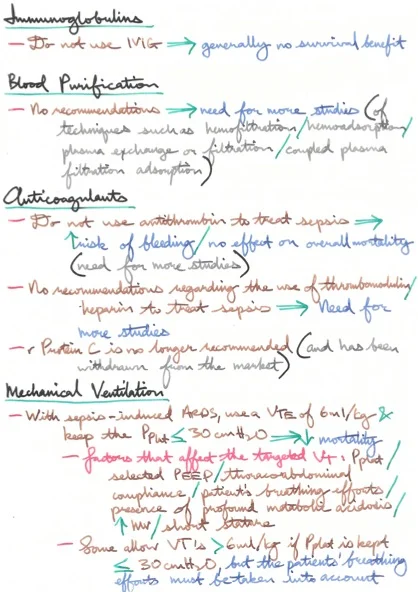 Immunoglobulins
— Do not use IVIG → generally no survival benefit
Blood Purification
— No recommendations → need for more studies (of
techniques such as hemofiltration/hemoadsorption/
plasma exchange or filtration/coupled plasma
filtration adsorption)
Anticoagulants
— Do not use antithrombin to treat sepsis →
↑ risk of bleeding/no effect on overall mortality
(need for more studies)
— No recommendations regarding the use of thrombomodulin/
heparin to treat sepsis → Need for
more studies
— r Protein C is no longer recommended (and has been
withdrawn from the market)
Mechanical Ventilation
— With sepsis-induced ARDS, use a VTE of 6ml/kg &
keep the Pplat ≤ 30 cmH2O → ↓ mortality
— Factors that affect the targeted VT: Pplat/
selected PEEP/thoracoabdominal
compliance/patient's breathing efforts/
presence of profound metabolic acidosis/
↑ MV/short stature
— Some allow VT's >6ml/kg if Pplat is kept
≤ 30 cmH2O, but the patients' breathing
efforts must be taken into account